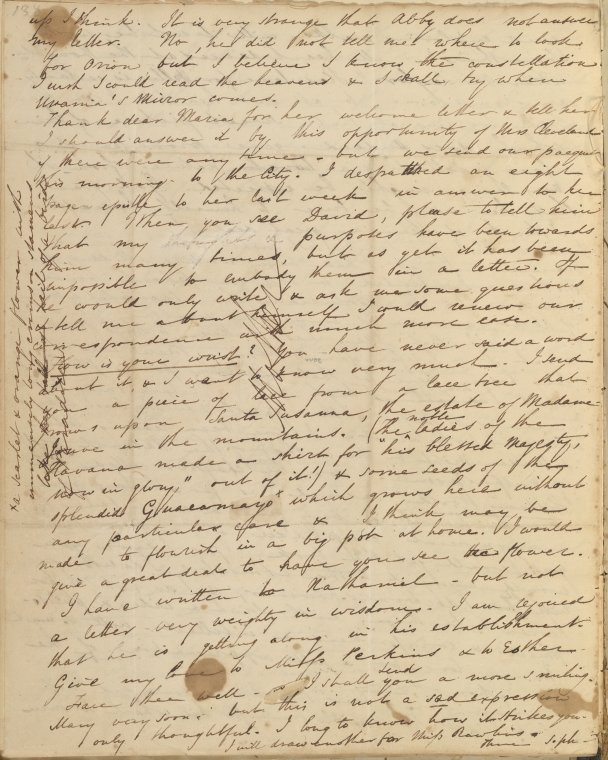 up I think. It is very strange that Abby does not answer
my letter. No, he did not tell me where to look
for Orion but I believe I know the constellation.
I wish I could read the heavens & I shall try when
Urania's Mirror comes.
Thank dear Maria for her welcome letter & tell her
I should answer it by this opportunity of Mrs Cleveland
if there were any time - but we send our
this morning to the City. I despatched an eight
page epistle to her last week in answer to her
last. When you see David, please to tell him
that my thoughts & purposes have been towards
him many times, but as yet it has been
impossible to embody them in a letter. If
he would only write & ask me some questions
& tell me about himself I would renew our
correspondence with much more ease.
How is your wrist? You have never said a word
about it & I want to know very much. I send
you a piece of lace from a lace tree that
grows upon Santa Susanna, the estate of Madame
in the mountains. (The noble ladies of the
Havana made a shirt for "his blessed Majesty,
now in glory," out of it!) & some seeds of the
splendid Guacamayo* which grows here without
any particular care & I think may be
made to flourish in a big pot at home. I would
give a great deal to have you see the flower.
I have written to Nathaniel - but not
a letter very weighty in wisdom. I am rejoiced
that he is getting along in his establishment.
Give my love to Miss Perkins & to Esther.
Fare thee well - I shall send you a more smiling
Mary very soon - but this is not a sad expression
only thoughtful. I long to know how it strikes you.
I will draw another for Miss Rawlins - thine Soph -
*a scarlet & orange flower with
immensely long stamens